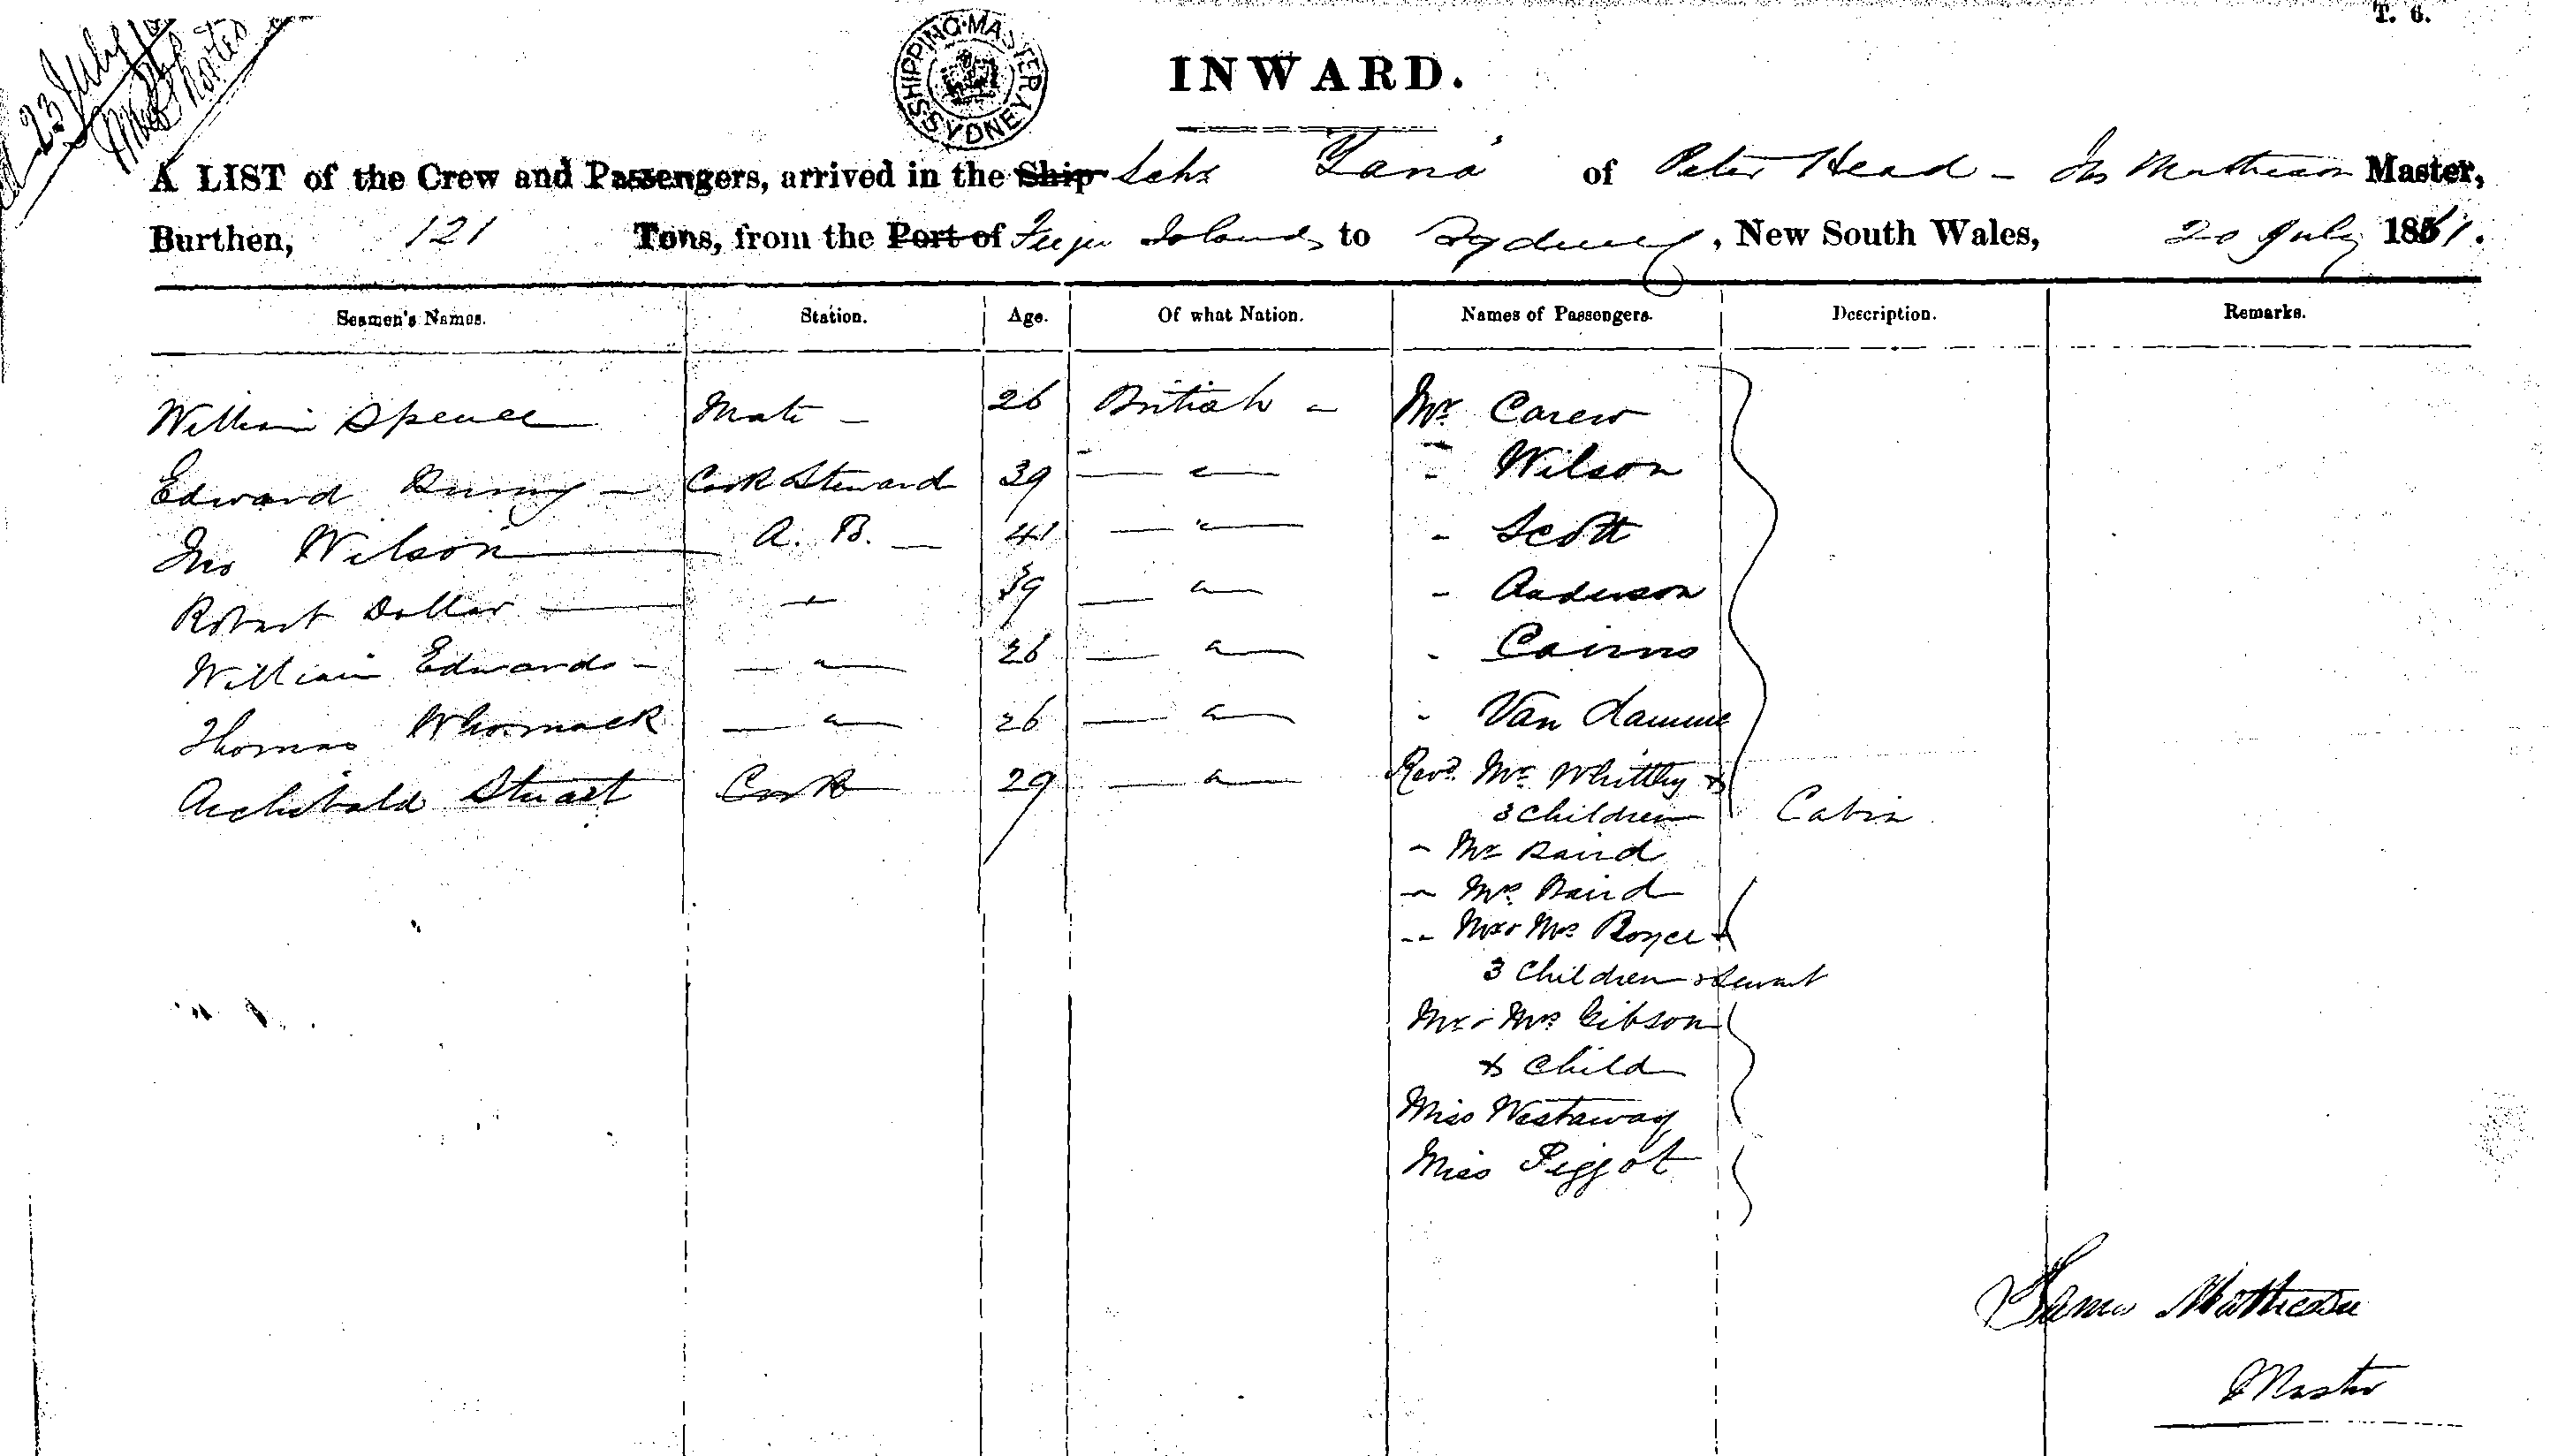 T. 6.
23 July
SHIPPING MASTER SYDNEY
INWARD.
A LIST of the Crew and Passengers, arrived in the Ship Schr "Tana" of Peter Head - Jas Mathieson Master,
Burthen, 121 Tons, from the Port of Feejee Islands to Sydney, New South Wales, 20 July 1861.
Seamen's Names. Station. Age. Of what Nation. Names of Passengers. Description. Remarks.
William Spence Mate - 26 British - Mr Carew
Edward - Cook Steward 39 — " — " Wilson
Jno Wilson — A. B. — 41 — " — " Scott
Robert Dollar — " 39 — " — " Anderson
William Edwards - — " — 26 — " — " Cairns
Thomas Whomack — " — 26 — " — " Van Damme
Archibald Stuart Cook 29 — " — Revd. Mr Whittley &
3 Children Cabin
" Mr Baird
" Mrs Baird
" Mr & Mrs Boyce &
3 Children & Servant
Mr & Mrs Gibson
& Child
Miss Westaway
Miss Piggot
James Mathieson
Master